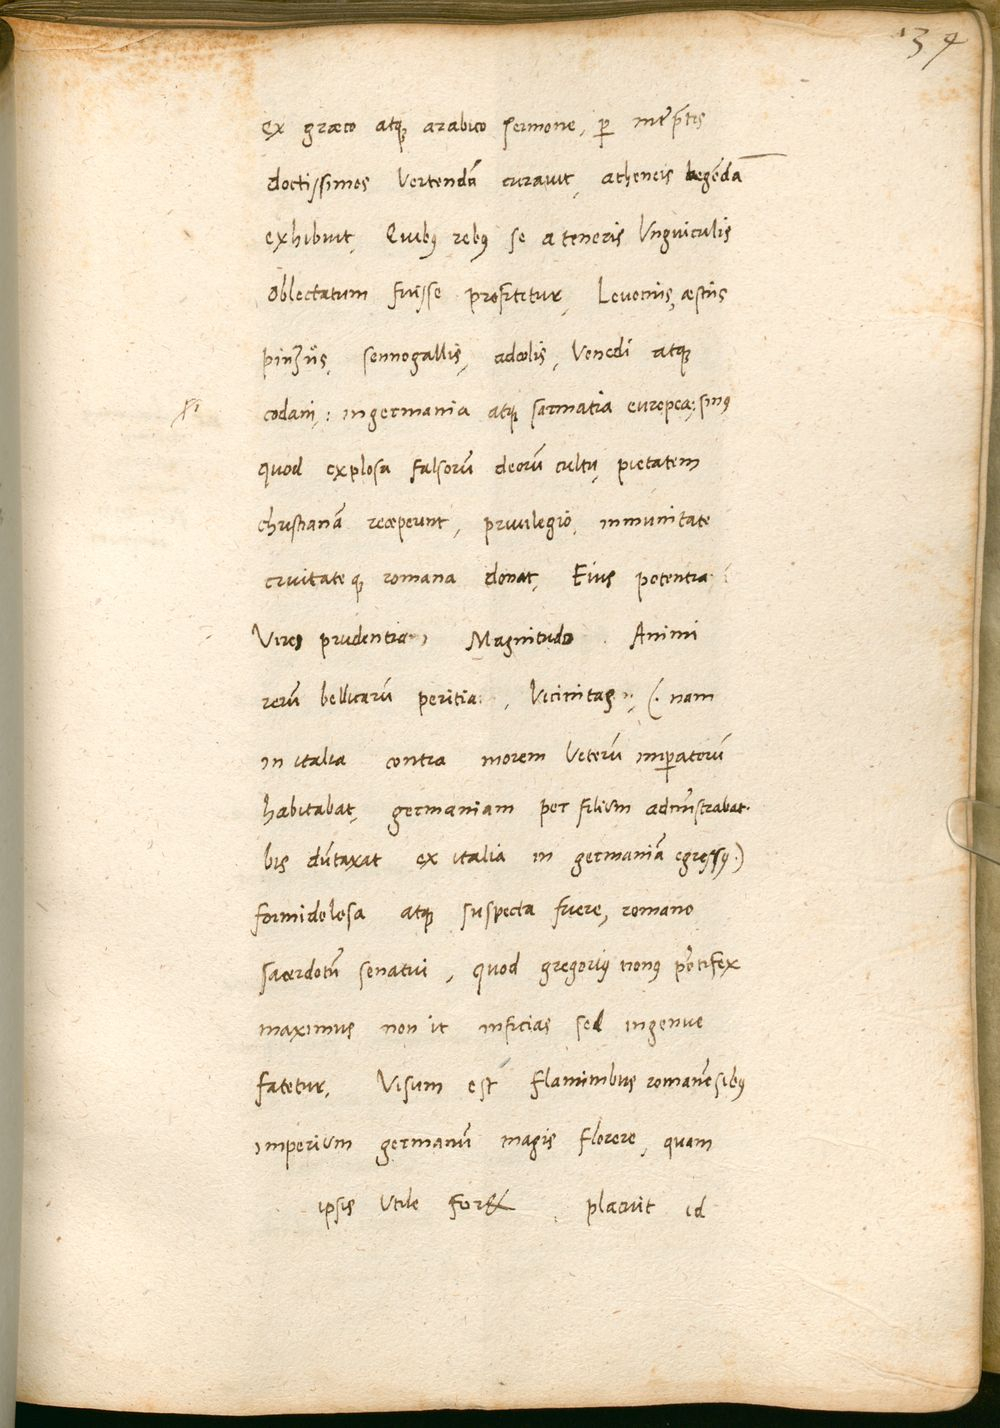 39
ex græco atq; arabico sermone, p̱ intp̱̃tes
doctissimos Vertendã curauit, atheneis legẽdã
exhibuit, Quibꝰ rebꝰ se a teneris Vnguiculis
oblectatum fuisse profitetur, Leuonijs, æstijs
pinʒijs, sennogallis, adcolis, Venedi atq;
codani, : in germania atq; sarmatia europea; sinꝰ
quod explosa falsorũ deorũ cultu, pietatem
christianã receperunt, priuilegio, inmunitate
ciuitateq; romana donat, Eius potentia
Vires prudentia, Magnitudo Animi
rerũ bellicarũ peritia, Vicinitas, (. nam
in italia contra morem Veterũ imperatorũ
habitabat, germaniam per filium administrabat.
bis dũtaxat ex italia in germaniã egressꝰ.)
formidolosa atq; suspecta fuere, romano
sacerdotũ senatui, quod gregoriꝰ nonꝰ põtifex
maximus non it inficias sed ingenue
fatetur, Visum est flaminibus romanẽsibꝰ
imperium germanũ magis florere, quam
ipsis Vtile foret placuit id